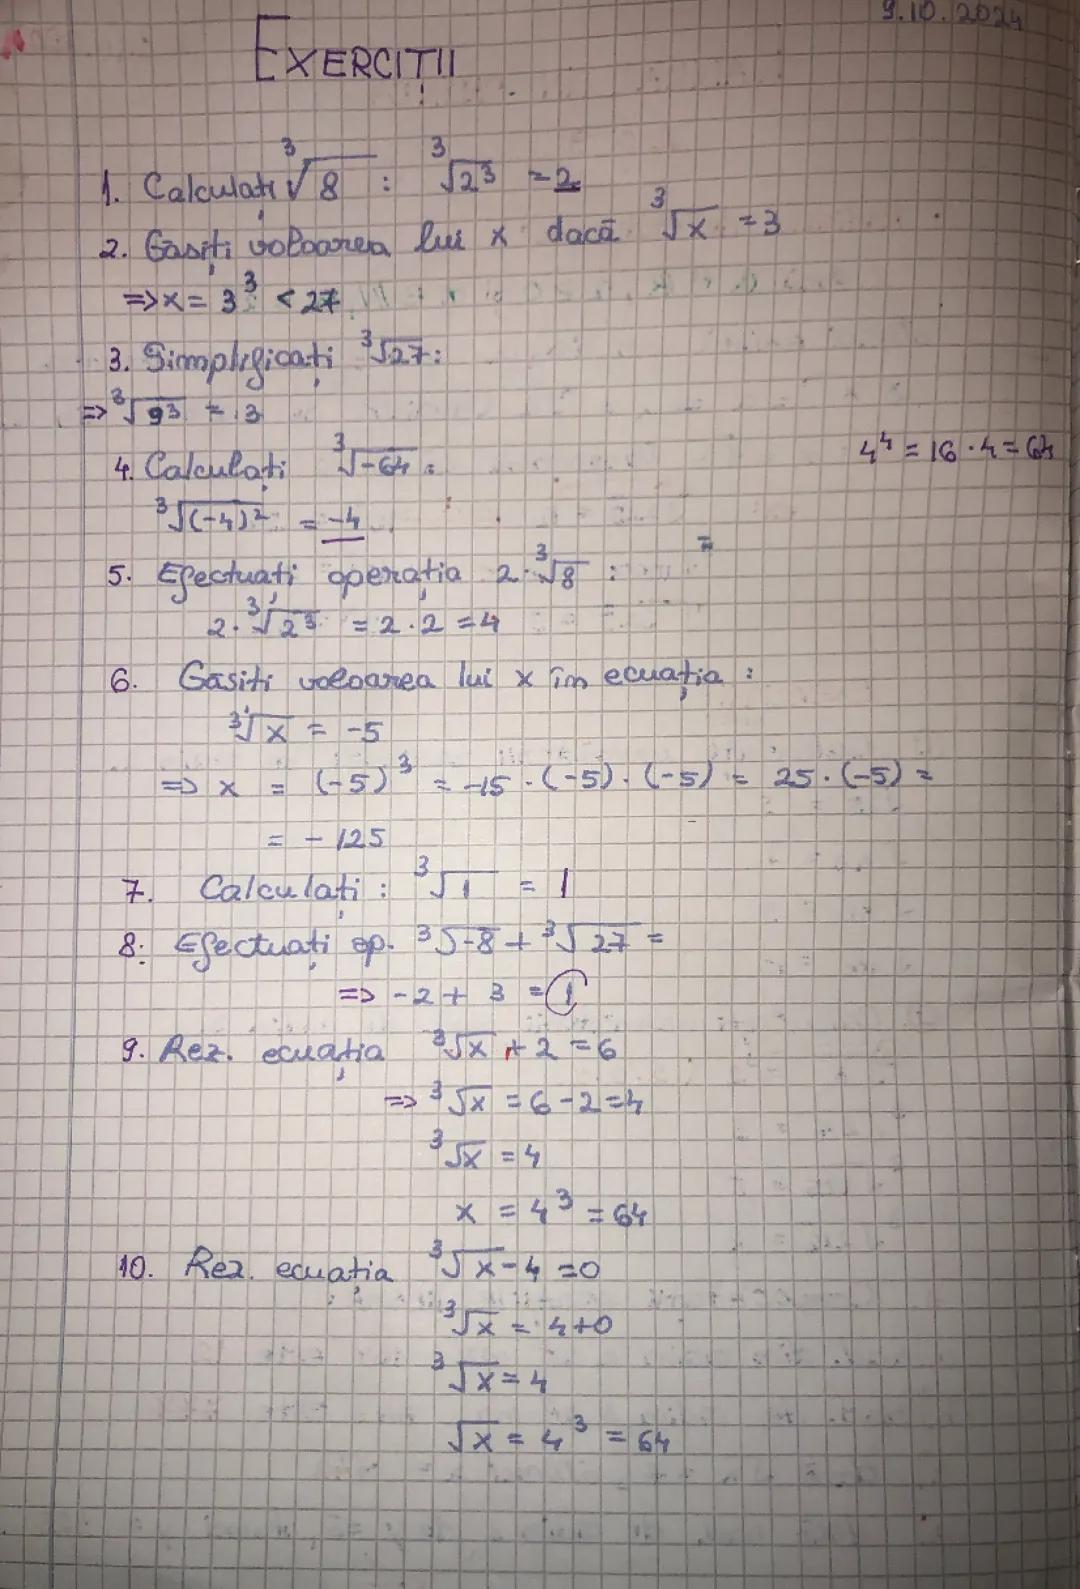 9.10.2024
EXERCIȚII
1. Calculați ∛8 : ∛2³ = 2
2. Găsiți valoarea lui x dacă ∛x = 3
=> x = 3³ < 27
3. Simplificați ∛27:
=> ∛9³ = 3
4. Calculați ∛-64 :
4⁴ = 16 · 4 = 64
∛(-4)² = -4
5. Efectuați operația 2·∛8 :
2·∛2³ = 2·2 = 4
6. Găsiți valoarea lui x în ecuația :
∛x = -5
=> x = (-5)³ = -15 · (-5) · (-5) = 25 · (-5) =
= - 125
7. Calculați : ∛1 = 1
8: Efectuați op. ∛-8 + ∛27 =
=> -2 + 3 = 1
9. Rez. ecuația ∛x + 2 = 6
=> ∛x = 6 - 2 = 4
∛x = 4
x = 4³ = 64
10. Rez. ecuația ∛x - 4 = 0
∛x = 4+0
∛x = 4
√x = 4³ = 64